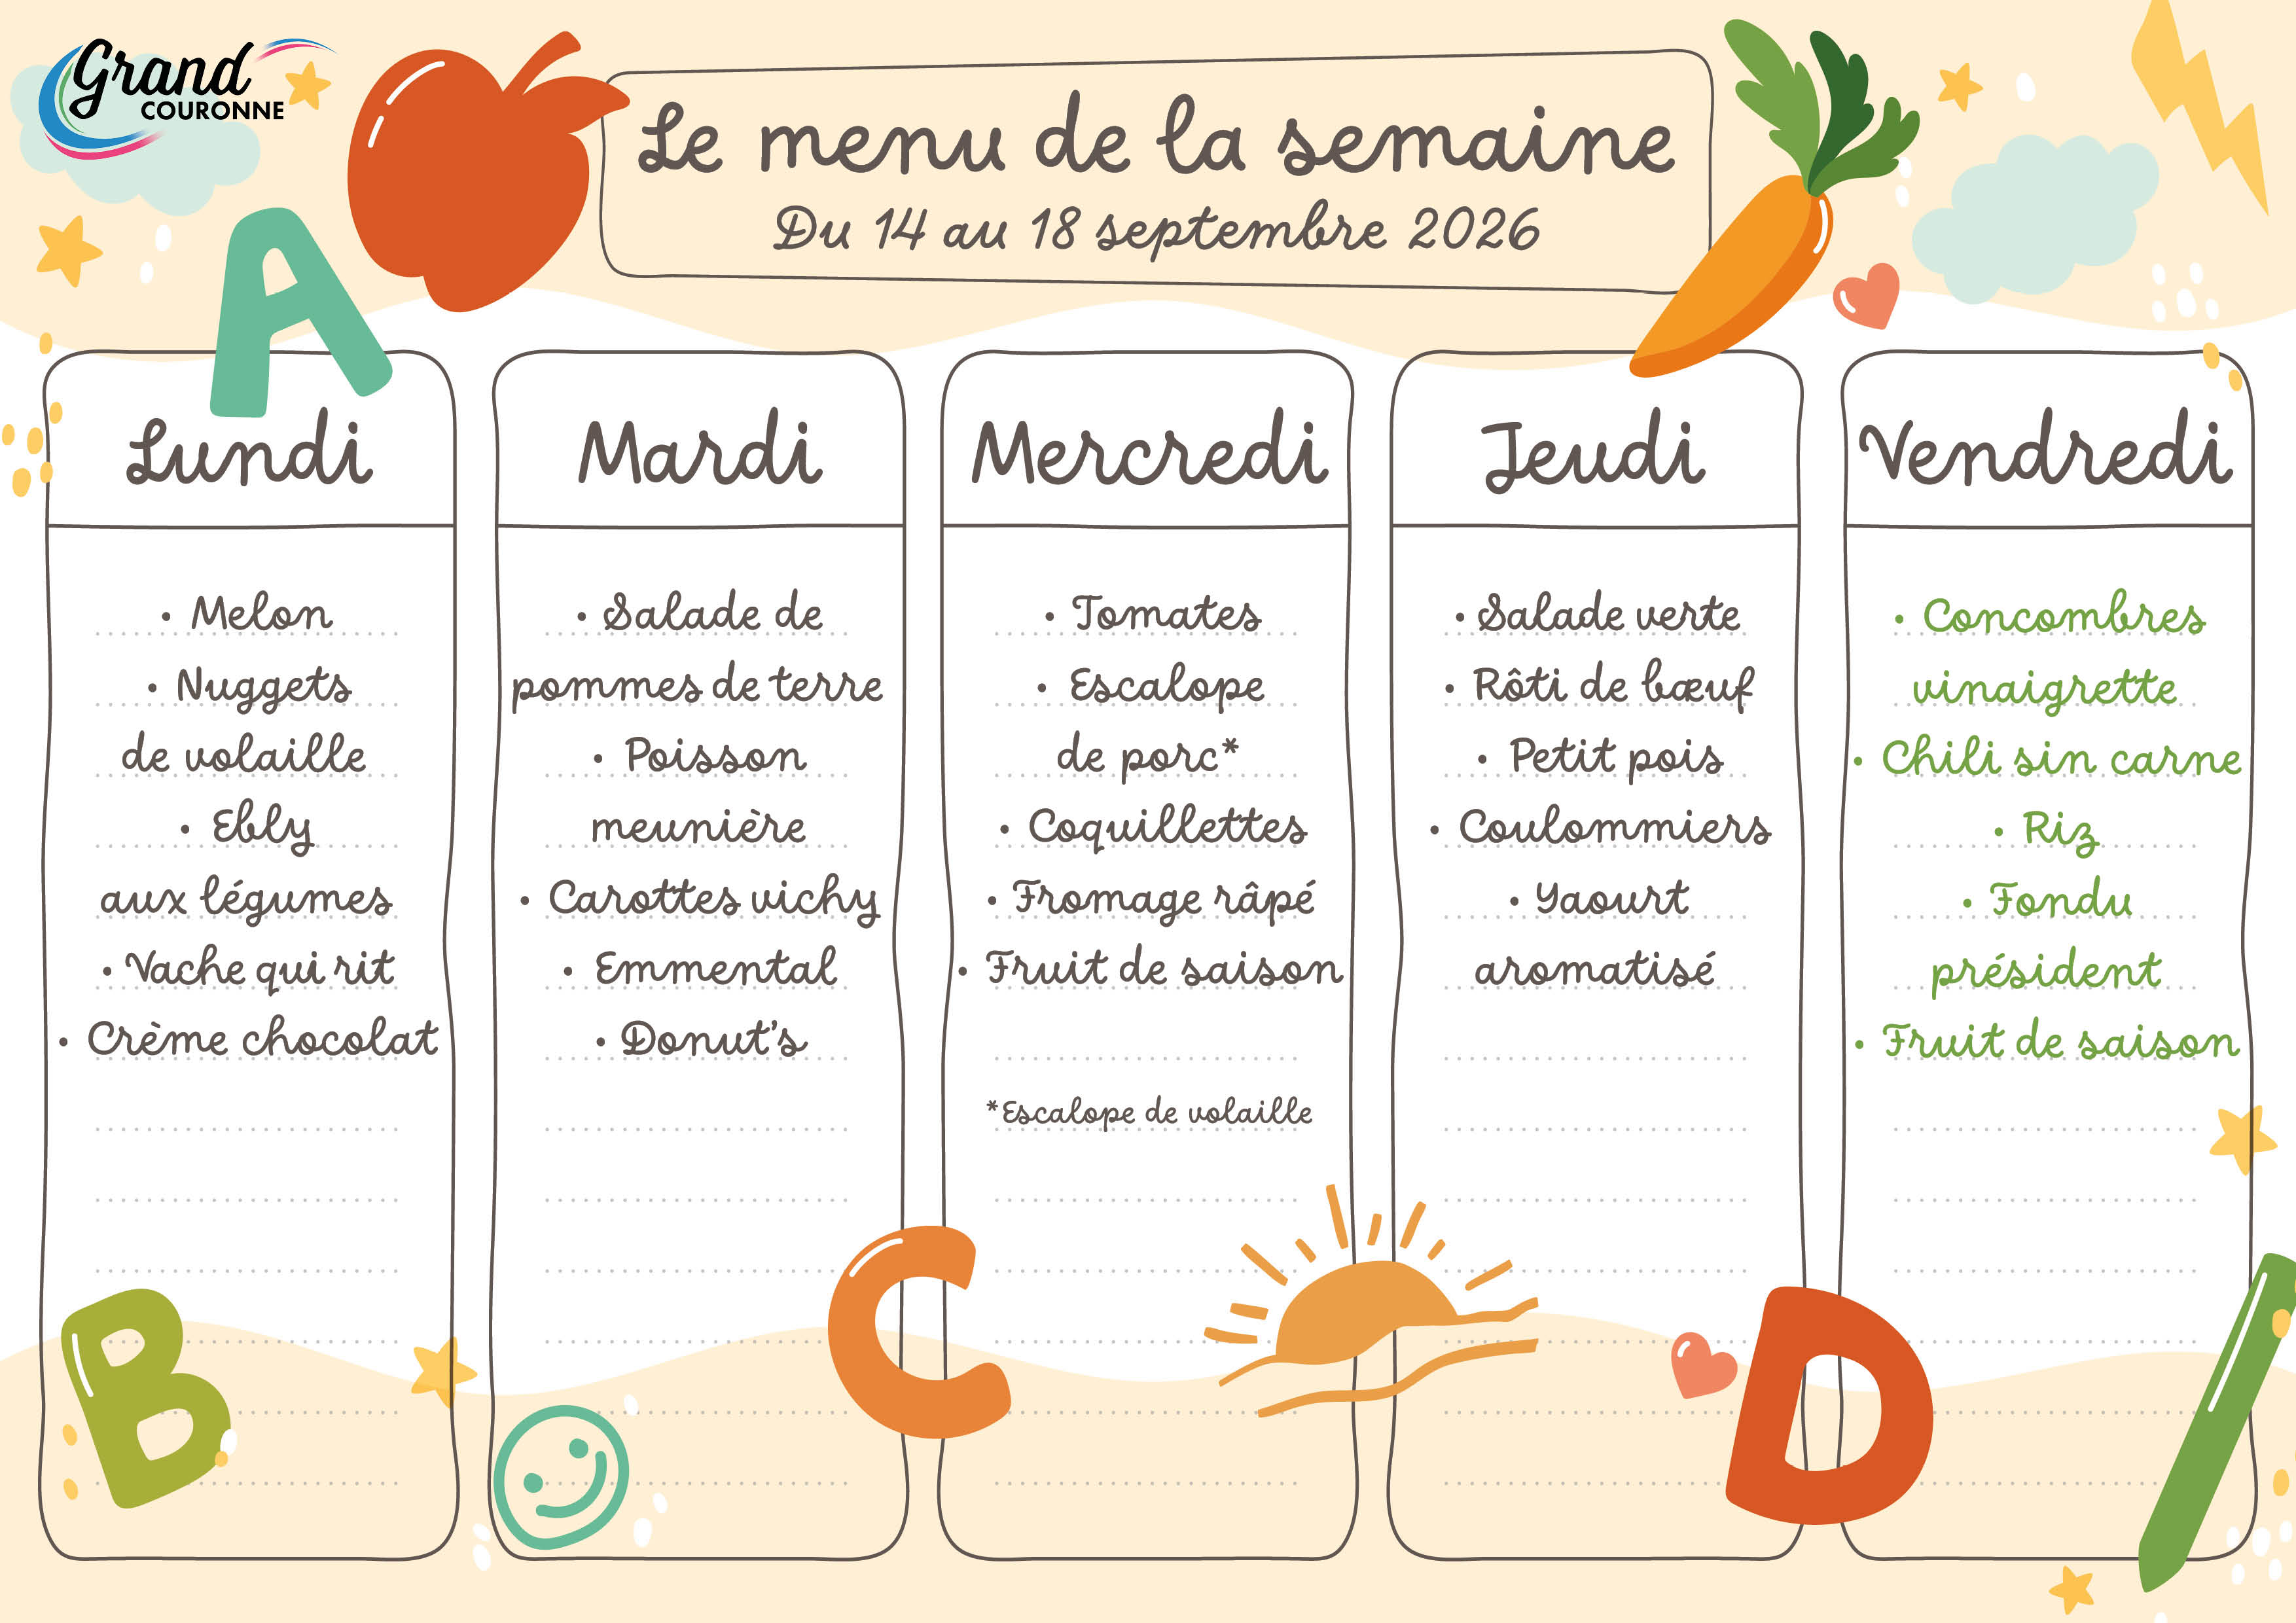 Grand
COURONNE
Le menu de la semaine
Du 14 au 18 septembre 2026
A
Lundi
• Melon
• Nuggets
de volaille
• Ebly
aux légumes
• Vache qui rit
• Crème chocolat
Mardi
• Salade de
pommes de terre
• Poisson
meunière
• Carottes vichy
• Emmental
• Donut's
Mercredi
• Tomates
• Escalope
de porc*
• Coquillettes
• Fromage râpé
• Fruit de saison
*Escalope de volaille
Jeudi
• Salade verte
• Rôti de bœuf
• Petit pois
• Coulommiers
• Yaourt
aromatisé
Vendredi
• Concombres
vinaigrette
• Chili sin carne
• Riz
• Fondu
président
• Fruit de saison
B
C
D